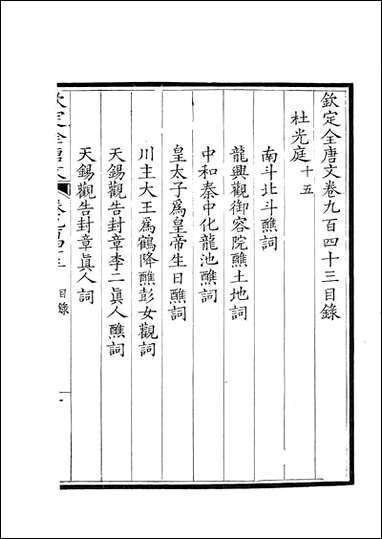 欽定全唐文卷九百四十三目錄
杜光庭十五
南斗北斗醮詞
龍興觀御容院醮土地詞
中和秦中化龍池醮詞
皇太子爲皇帝生日醮詞
川主大王爲鶴降醮彭女觀詞
天錫觀告封章李二眞人醮詞
天錫觀告封章眞人詞
目錄
一